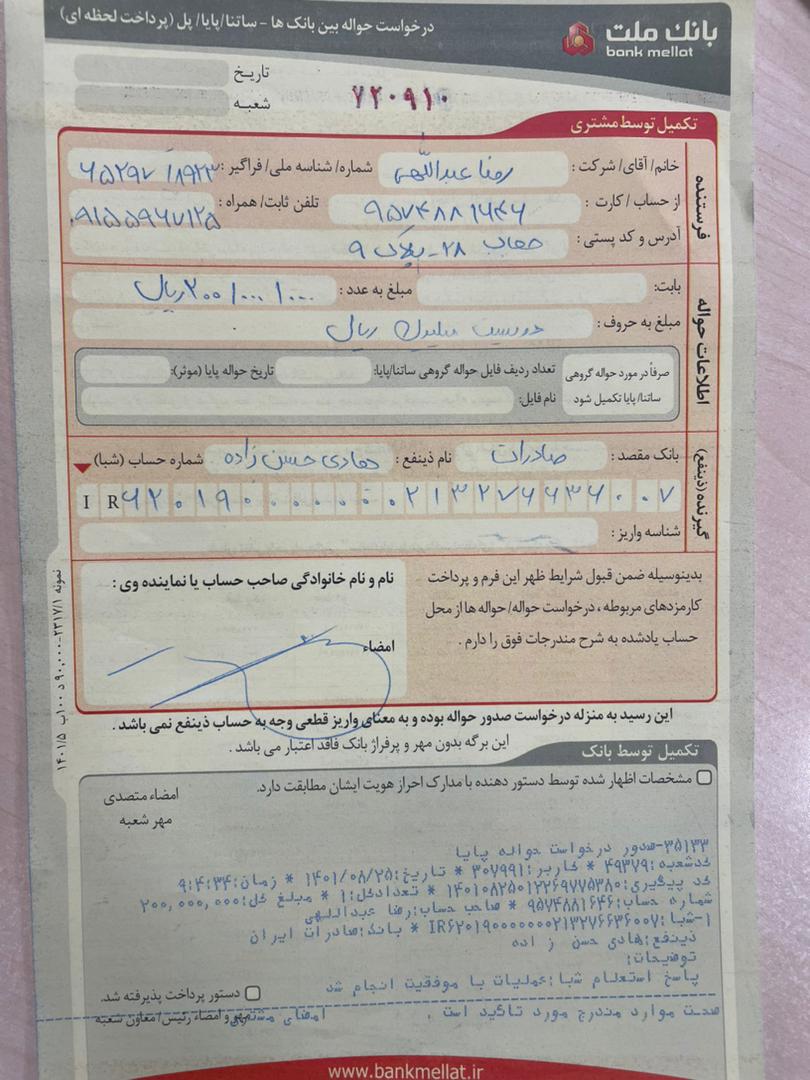 بانک ملت
bank mellat
درخواست حواله بین بانک ها - ساتنا/پایا/پل (پرداخت لحظه ای)
تاریخ
شعبه
۷۲۰۹۱۰
تکمیل توسط مشتری
فرستنده
خانم/آقای/شرکت: رضا عبداللهی شماره/شناسه ملی/فراگیر:
از حساب/کارت: ۹۵۷۴۸۸۱۶۴۶ تلفن ثابت/همراه: ۰۹۱۵۵۹۶۷۱۲۵
آدرس و کد پستی: حجاب ۲۸ - پلاک ۹
اطلاعات حواله
بابت: مبلغ به عدد: ۲۰۰/۰۰۰/۰۰۰ ریال
مبلغ به حروف: دویست میلیون ریال
صرفاً در مورد حواله گروهی ساتنا/پایا تکمیل شود
تعداد ردیف فایل حواله گروهی ساتنا/پایا: تاریخ حواله پایا (موثر):
نام فایل:
گیرنده (ذینفع)
بانک مقصد: صادرات نام ذینفع: هادی حسن زاده شماره حساب (شبا)
IR ۶۲۰۱۹۰۰۰۰۰۰۰۰۲۱۳۲۷۶۶۳۶۰۰۷
شناسه واریز:
بدینوسیله ضمن قبول شرایط ظهر این فرم و پرداخت
کارمزدهای مربوطه، درخواست حواله/حواله ها از محل
حساب یادشده به شرح مندرجات فوق را دارم.
نام و نام خانوادگی صاحب حساب یا نماینده وی:
امضاء
این رسید به منزله درخواست صدور حواله بوده و به معنای واریز قطعی وجه به حساب ذینفع نمی باشد.
این برگه بدون مهر و پرفراژ بانک فاقد اعتبار می باشد.
تکمیل توسط بانک
مشخصات اظهار شده توسط دستور دهنده با مدارک احراز هویت ایشان مطابقت دارد.
امضاء متصدی
مهر شعبه
۳۵۱۳۳-صدور درخواست حواله پایا
کدشعبه:۴۹۳۷۹ * کاربر:۳۰۷۹۹۱ * تاریخ:۱۴۰۱/۰۸/۲۵ * زمان:۹:۴:۳۴
کد پیگیری:۱۴۰۱۰۸۲۵۰۱۲۲۶۹۷۷۵۳۸۰ * تعدادکل:۱ * مبلغ کل:۲۰۰,۰۰۰,۰۰۰
شماره حساب:۹۵۷۴۸۸۱۶۴۶ * صاحب حساب:رضا عبداللهی
۱-شبا:IR۶۲۰۱۹۰۰۰۰۰۰۰۰۲۱۳۲۷۶۶۳۶۰۰۷ * بانک:صادرات ایران
ذینفع:هادی حسن ز اده
توضیحات:
پاسخ استعلام شبا:عملیات با موفقیت انجام شد
دستور پرداخت پذیرفته شد.
صحت موارد مندرج مورد تائید است . امضای مشتری
مهر و امضاء رئیس/معاون شعبه
www.bankmellat.ir
نمونه ۲۳۱۷/۱-۹۰,۰۰۰ د ۱۰۰ ب ۱۴۰۱/۵